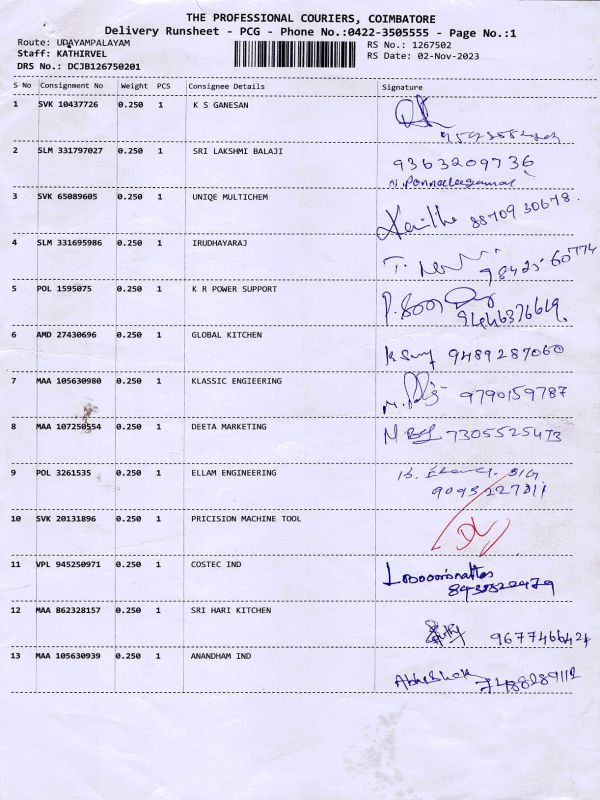 THE PROFESSIONAL COURIERS, COIMBATORE
Delivery Runsheet - PCG - Phone No.:0422-3505555 - Page No.:1
Route: UDAYAMPALAYAM
RS No.: 1267502
Staff: KATHIRVEL
RS Date: 02-Nov-2023
DRS No.: DCJB126750201
S No Consignment No Weight PCS Consignee Details Signature
1 SVK 10437726 0.250 1 K S GANESAN
2 SLM 331797027 0.250 1 SRI LAKSHMI BALAJI 9363209736
3 SVK 65089605 0.250 1 UNIQE MULTICHEM 88709 30678
4 SLM 331695986 0.250 1 IRUDHAYARAJ 98425 60774
5 POL 1595075 0.250 1 K R POWER SUPPORT
6 AMD 27430696 0.250 1 GLOBAL KITCHEN 9489287060
7 MAA 105630980 0.250 1 KLASSIC ENGIEERING 9790159787
8 MAA 107250554 0.250 1 DEETA MARKETING 7305525473
9 POL 3261535 0.250 1 ELLAM ENGINEERING
10 SVK 20131896 0.250 1 PRICISION MACHINE TOOL DL
11 VPL 945250971 0.250 1 COSTEC IND
12 MAA 862328157 0.250 1 SRI HARI KITCHEN
13 MAA 105630939 0.250 1 ANANDHAM IND Abhishek